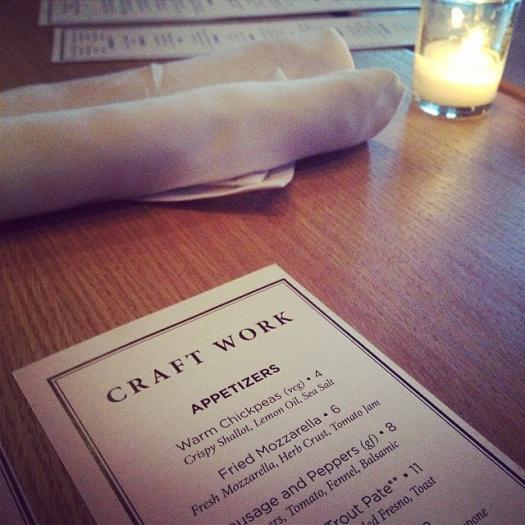 CRAFT WORK
APPETIZERS
Warm Chickpeas (veg) • 4
Crispy Shallot, Lemon Oil, Sea Salt
Fried Mozzarella • 6
Fresh Mozzarella, Herb Crust, Tomato Jam
and Peppers (gf) • 8
Tomato, Fennel, Balsamic
Trout Pate** • 11
Fresno, Toast